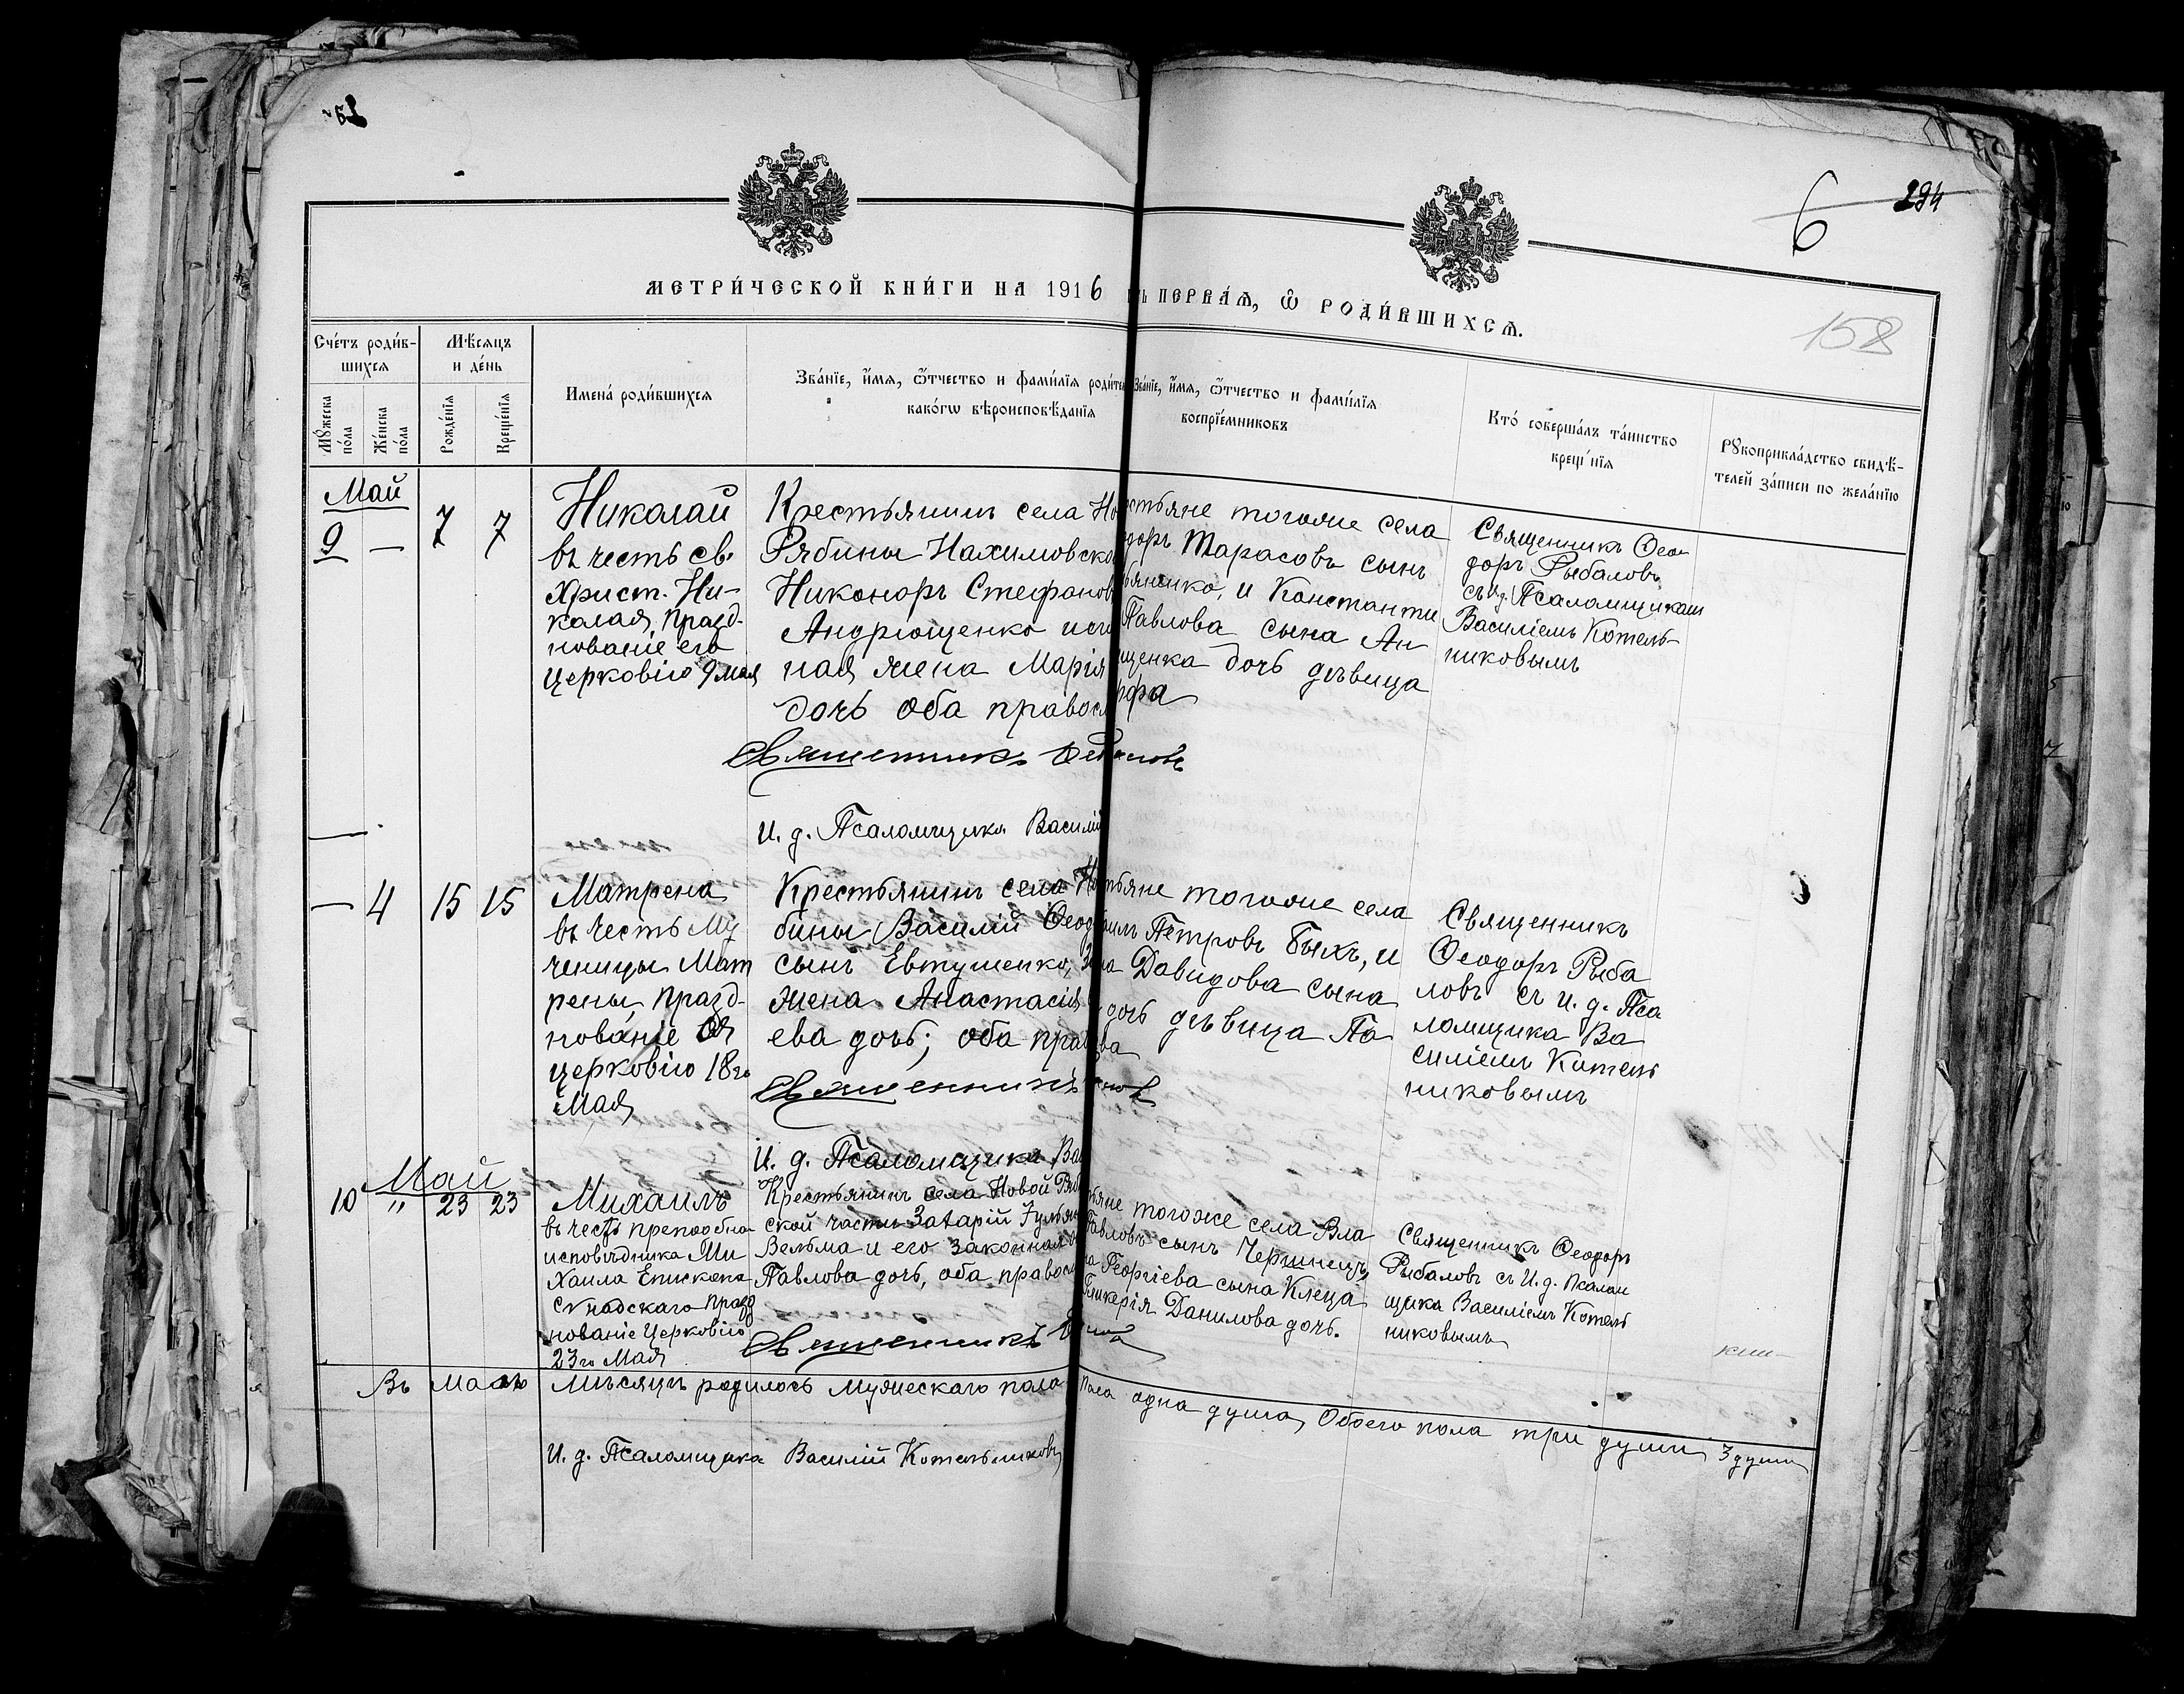 6
294
МЕТРИ́ЧЕСКОЙ КНИ́ГИ НА 1916
ПЕРВАЯ, Ѡ РОДИ́ВШИХСЯ.
158
Сче́тъ роди́в-
шихся
Мѣ́сяцъ
и де́нь
Мꙋ́жеска
по́ла
Же́нска
по́ла
Рожде́нїя
Креще́нїя
Имена̀ роди́вшихся
Зва́нїе, и́мя, ѻ҆́тчество и фами́лїя родите
како́гѡ вѣроисповѣ́данїя
Зва́нїе, и́мя, ѻ҆́тчество и фами́лїя
воспрїе́мниковъ
Кто̀ соверша́лъ та́инство
креще́нїя
Рꙋкоприкла́дство свидѣ́-
телей за́писи по жела́нїю
Май
9 — 7 7
Николай
въ честь св.
Христ. Ни-
колая, празд-
нованіе его
церковію 9 мая
Крестьянинъ села Но
Рябины Нахимовско
Никоноръ Стефанов
Андрющенко и его
ная жена Марія
дочь оба правосл
Священникъ
И. д. Псаломщика Василій
стьяне тогоже села
доръ Тарасовъ сынъ
ьяненко, и Константи
Павлова сына Ан
щенка дочь дѣвица
рфа
Священникъ Ѳео-
доръ Рыбаловъ
съ и.д. Псаломщикам
Василіемъ Котель-
никовымъ
— 4 15 15
Матрена
въ честь Му
ченицы Мат
рены, празд-
нованіе ея
церковію 18го
Мая
Крестьянинъ села Но
бины Василій Ѳеод
сынъ Евтушенко, за
жена Анастасія
ева дочь; оба пра
Священникъ
И. д. Псаломщика Ва
тьяне тогоже села
илъ Петровъ Быкъ, и
на Давидова сына
дочь дѣвица Па
ва
Священникъ
Ѳеодоръ Рыба
ловъ съ и. д. Пса
ломщика Ва
силіемъ Котель
никовымъ
Май
10 " 23 23
Михаилъ
въ честь преподобна
исповѣдника Ми
хаила Епископа
Синадскаго празд
нованіе Церковію
23го Мая
Крестьянинъ села Новой Ряб
ской части Захарій Іульян
Вельма и его законная
Павлова дочь, оба правосл
Священникъ
ьяне тогоже села Вла
Павловъ сынъ Чернинецъ
на Георгіева сына Клеца
Гликерія Данилова дочь.
Священникъ Ѳеодоръ
Рыбаловъ съ И. д. псалом
щика Василіемъ Котель
никовымъ
Въ маѣ Мѣсяцѣ родилось Мужескаго пола
пола одна душа, Обоего пола три души 3 души
И. д. Псаломщика Василій Котельниковъ